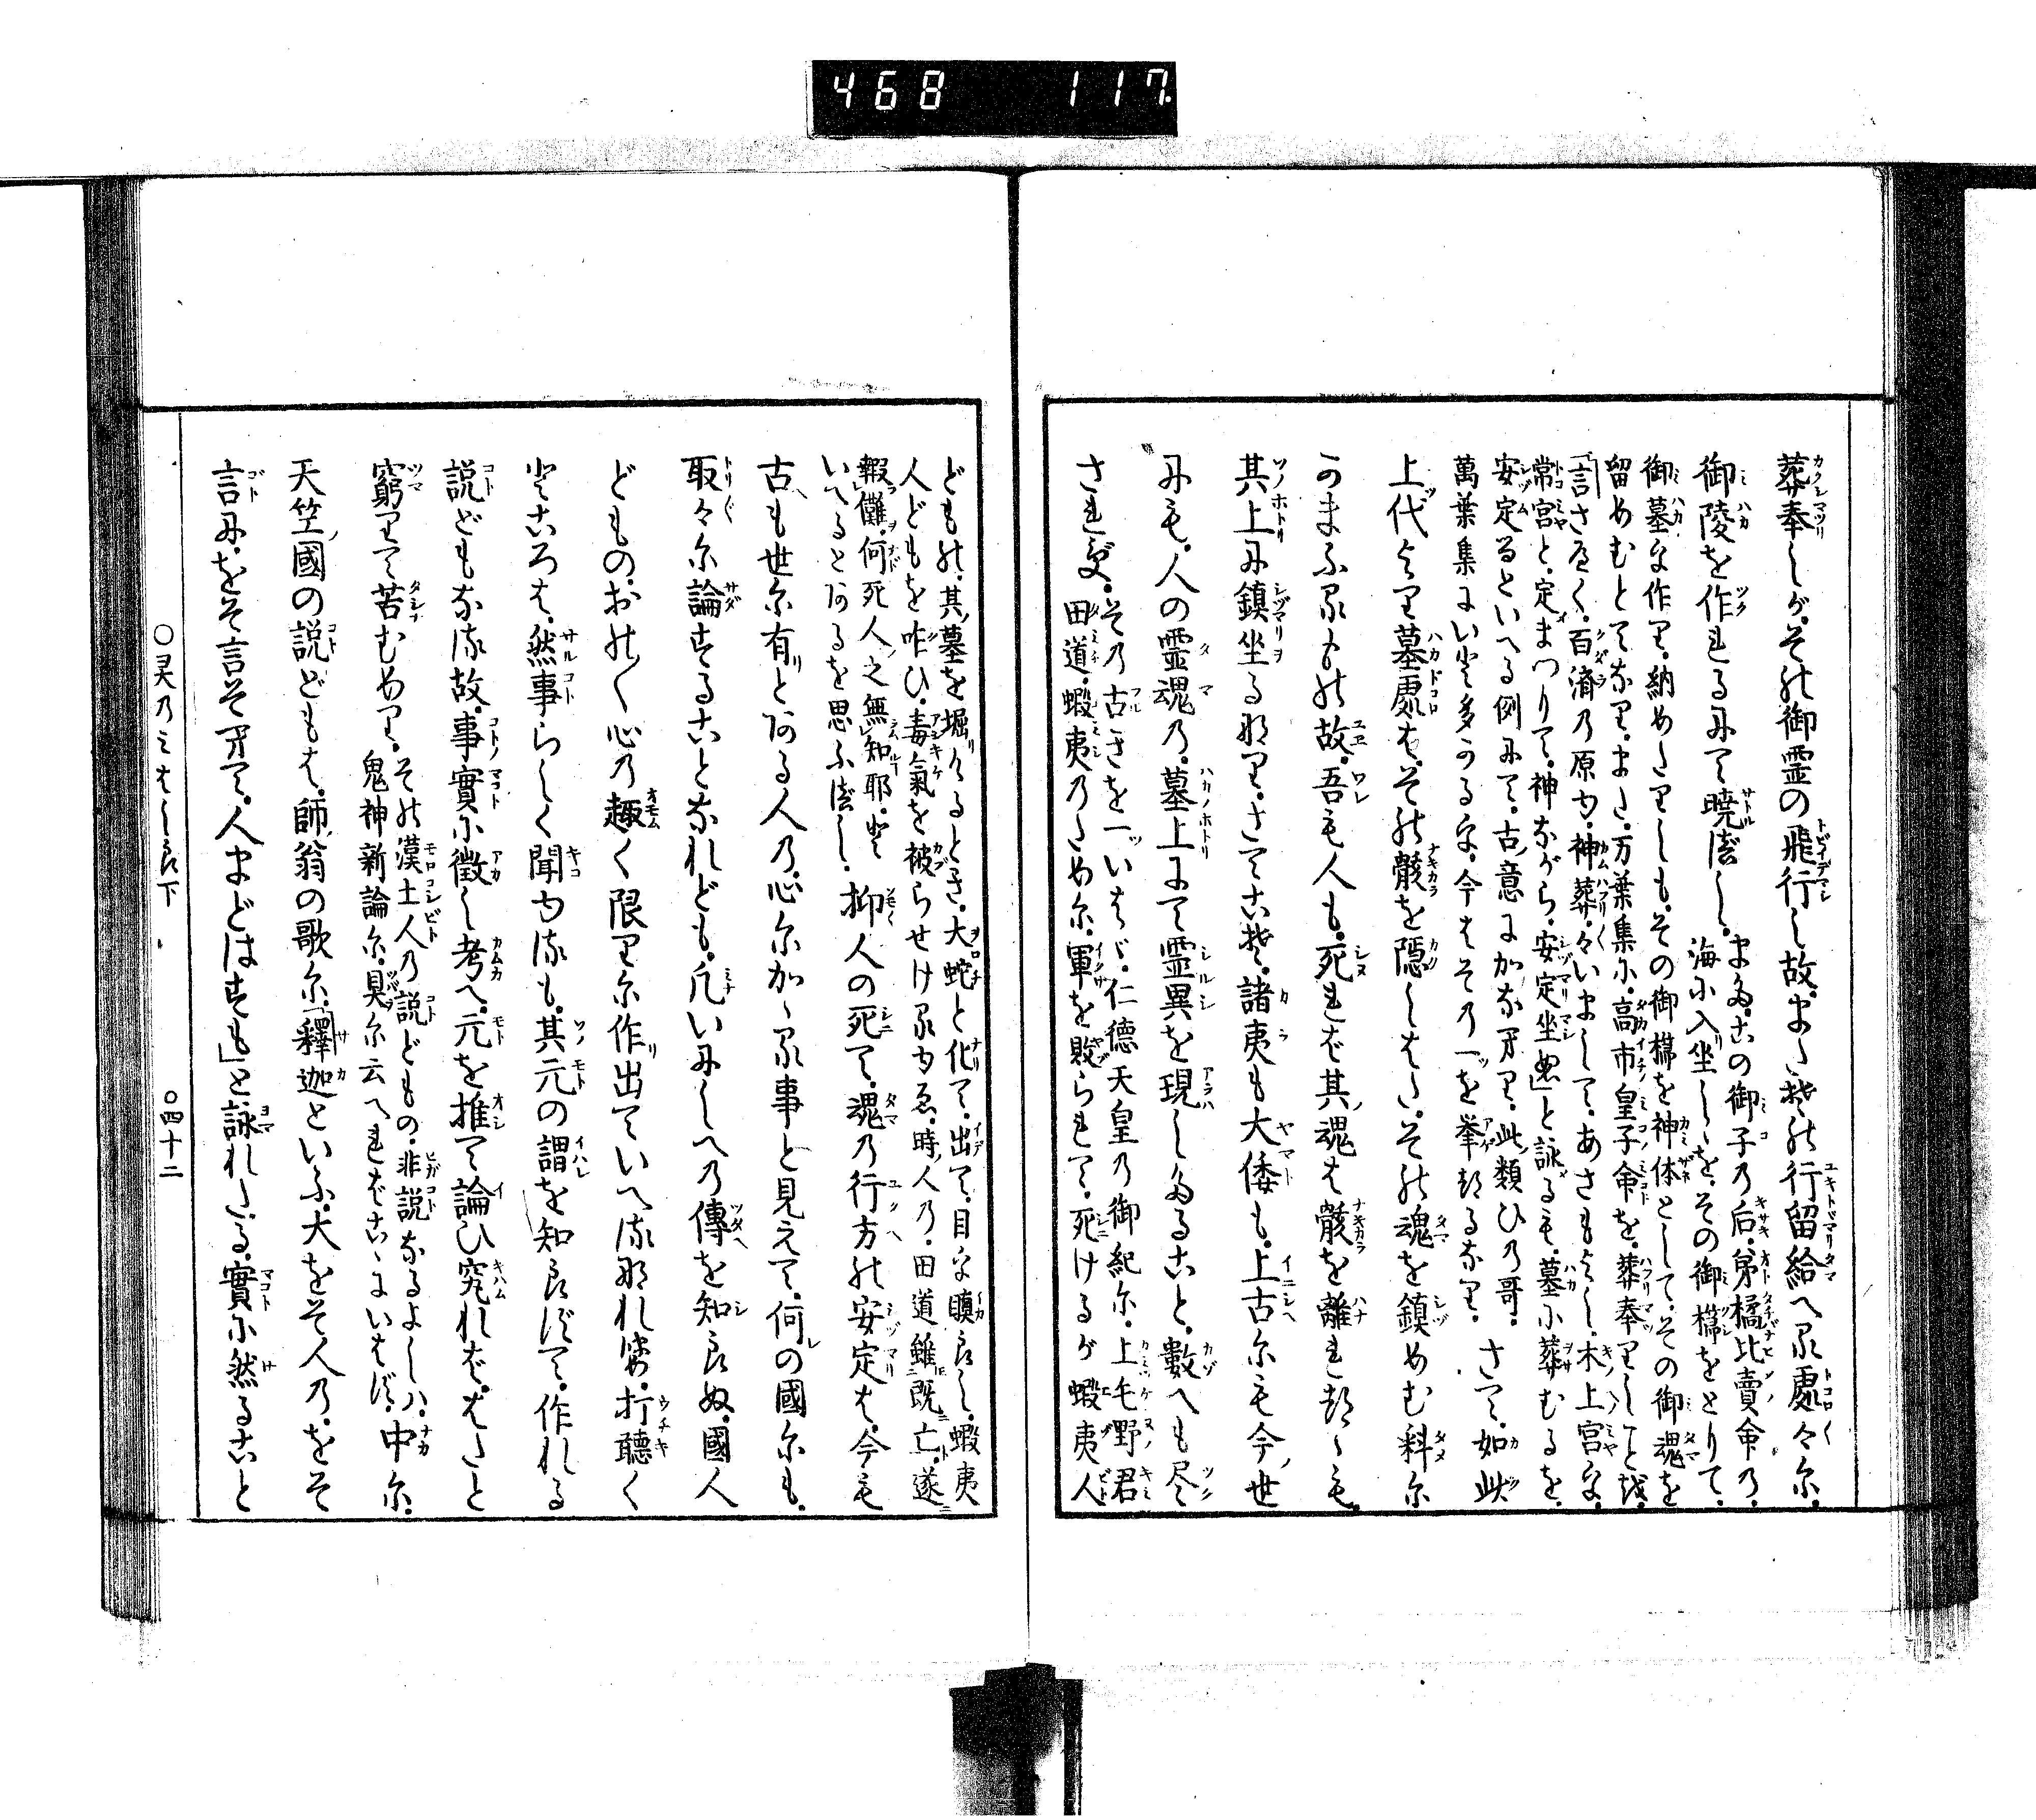 468 117
葬奉しが。その御霊の飛行し故。また其の行留給へる處々に。
御陵を作れるにて曉べし。また。この御子の后。弟橘比賣命の。
海に入坐しゝを。その御櫛をとりて。
御墓に作り。納めたりしも。その御櫛を神体として。その御魂を
留めむとてなり。また。万葉集に。高市皇子命を。葬奉りしことを。
「言さへく。百済の原ゆ。神葬。々いまして。あさもよし。木上宮を。
常宮と。定まつりて。神ながら。安定坐ぬ」と詠るも。墓に葬むるを。
安定るといへる例にて。古意にかなへり。此類ひの哥。
萬葉集にいと多かるを。今はその一を挙たるなり。さて。如此
上代より墓處は。その骸を隠しはた。その魂を鎮めむ料に
かまふるもの故。吾も人も。死れば其魂は骸を離れたれゝも。
其上に鎮坐る那り。さてこそ。諸夷も大倭も。上古にも今世
にも。人の霊魂の。墓上にて霊異を現したること。數へも尽
されず。その古きを一ッいはゞ。仁德天皇の御紀に。上毛野君
田道。蝦夷のために。軍を敗られて。死けるが蝦夷人
ども。其墓を堀けるとき。大蛇と化て。出て。目を瞋らし。蝦夷
人どもを咋ひ。毒氣を被らせける故。時人の。田道雖既亡。遂
報讎。何死人之無知耶。と
いへるとあるを思ふべし。抑人の死て。魂の行方の安定は。今も
古も世に有とある人の。心にかゝる事と見えて。何の國にも。
取々に論することなれども。凡いにしへの傳を知らぬ。國人
どもの。おの〱心の趣く限りに作出ていへる那れば。打聽く
ところは。然事らしく聞ゆるも。其元の謂を知らずて。作れる
説どもなる故。事實に徴し考へ。元を推て論ひ究れば。はたと
窮りて苦むめり。その漢土人の説どもの。非説なるよしハ。中に。
鬼神新論に。具に云へればこゝにいはず。
天竺國の説どもは。師翁の歌に。「釋迦といふ。大をそ人の。をそ
言に。をそ言そへて。人まどはすも」と詠れたる。實に然ること
○霊乃みはしら下 ○四十二